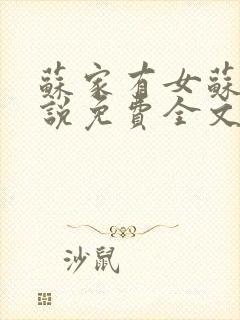 蘇家有女蘇
說免費全文
沙鼠